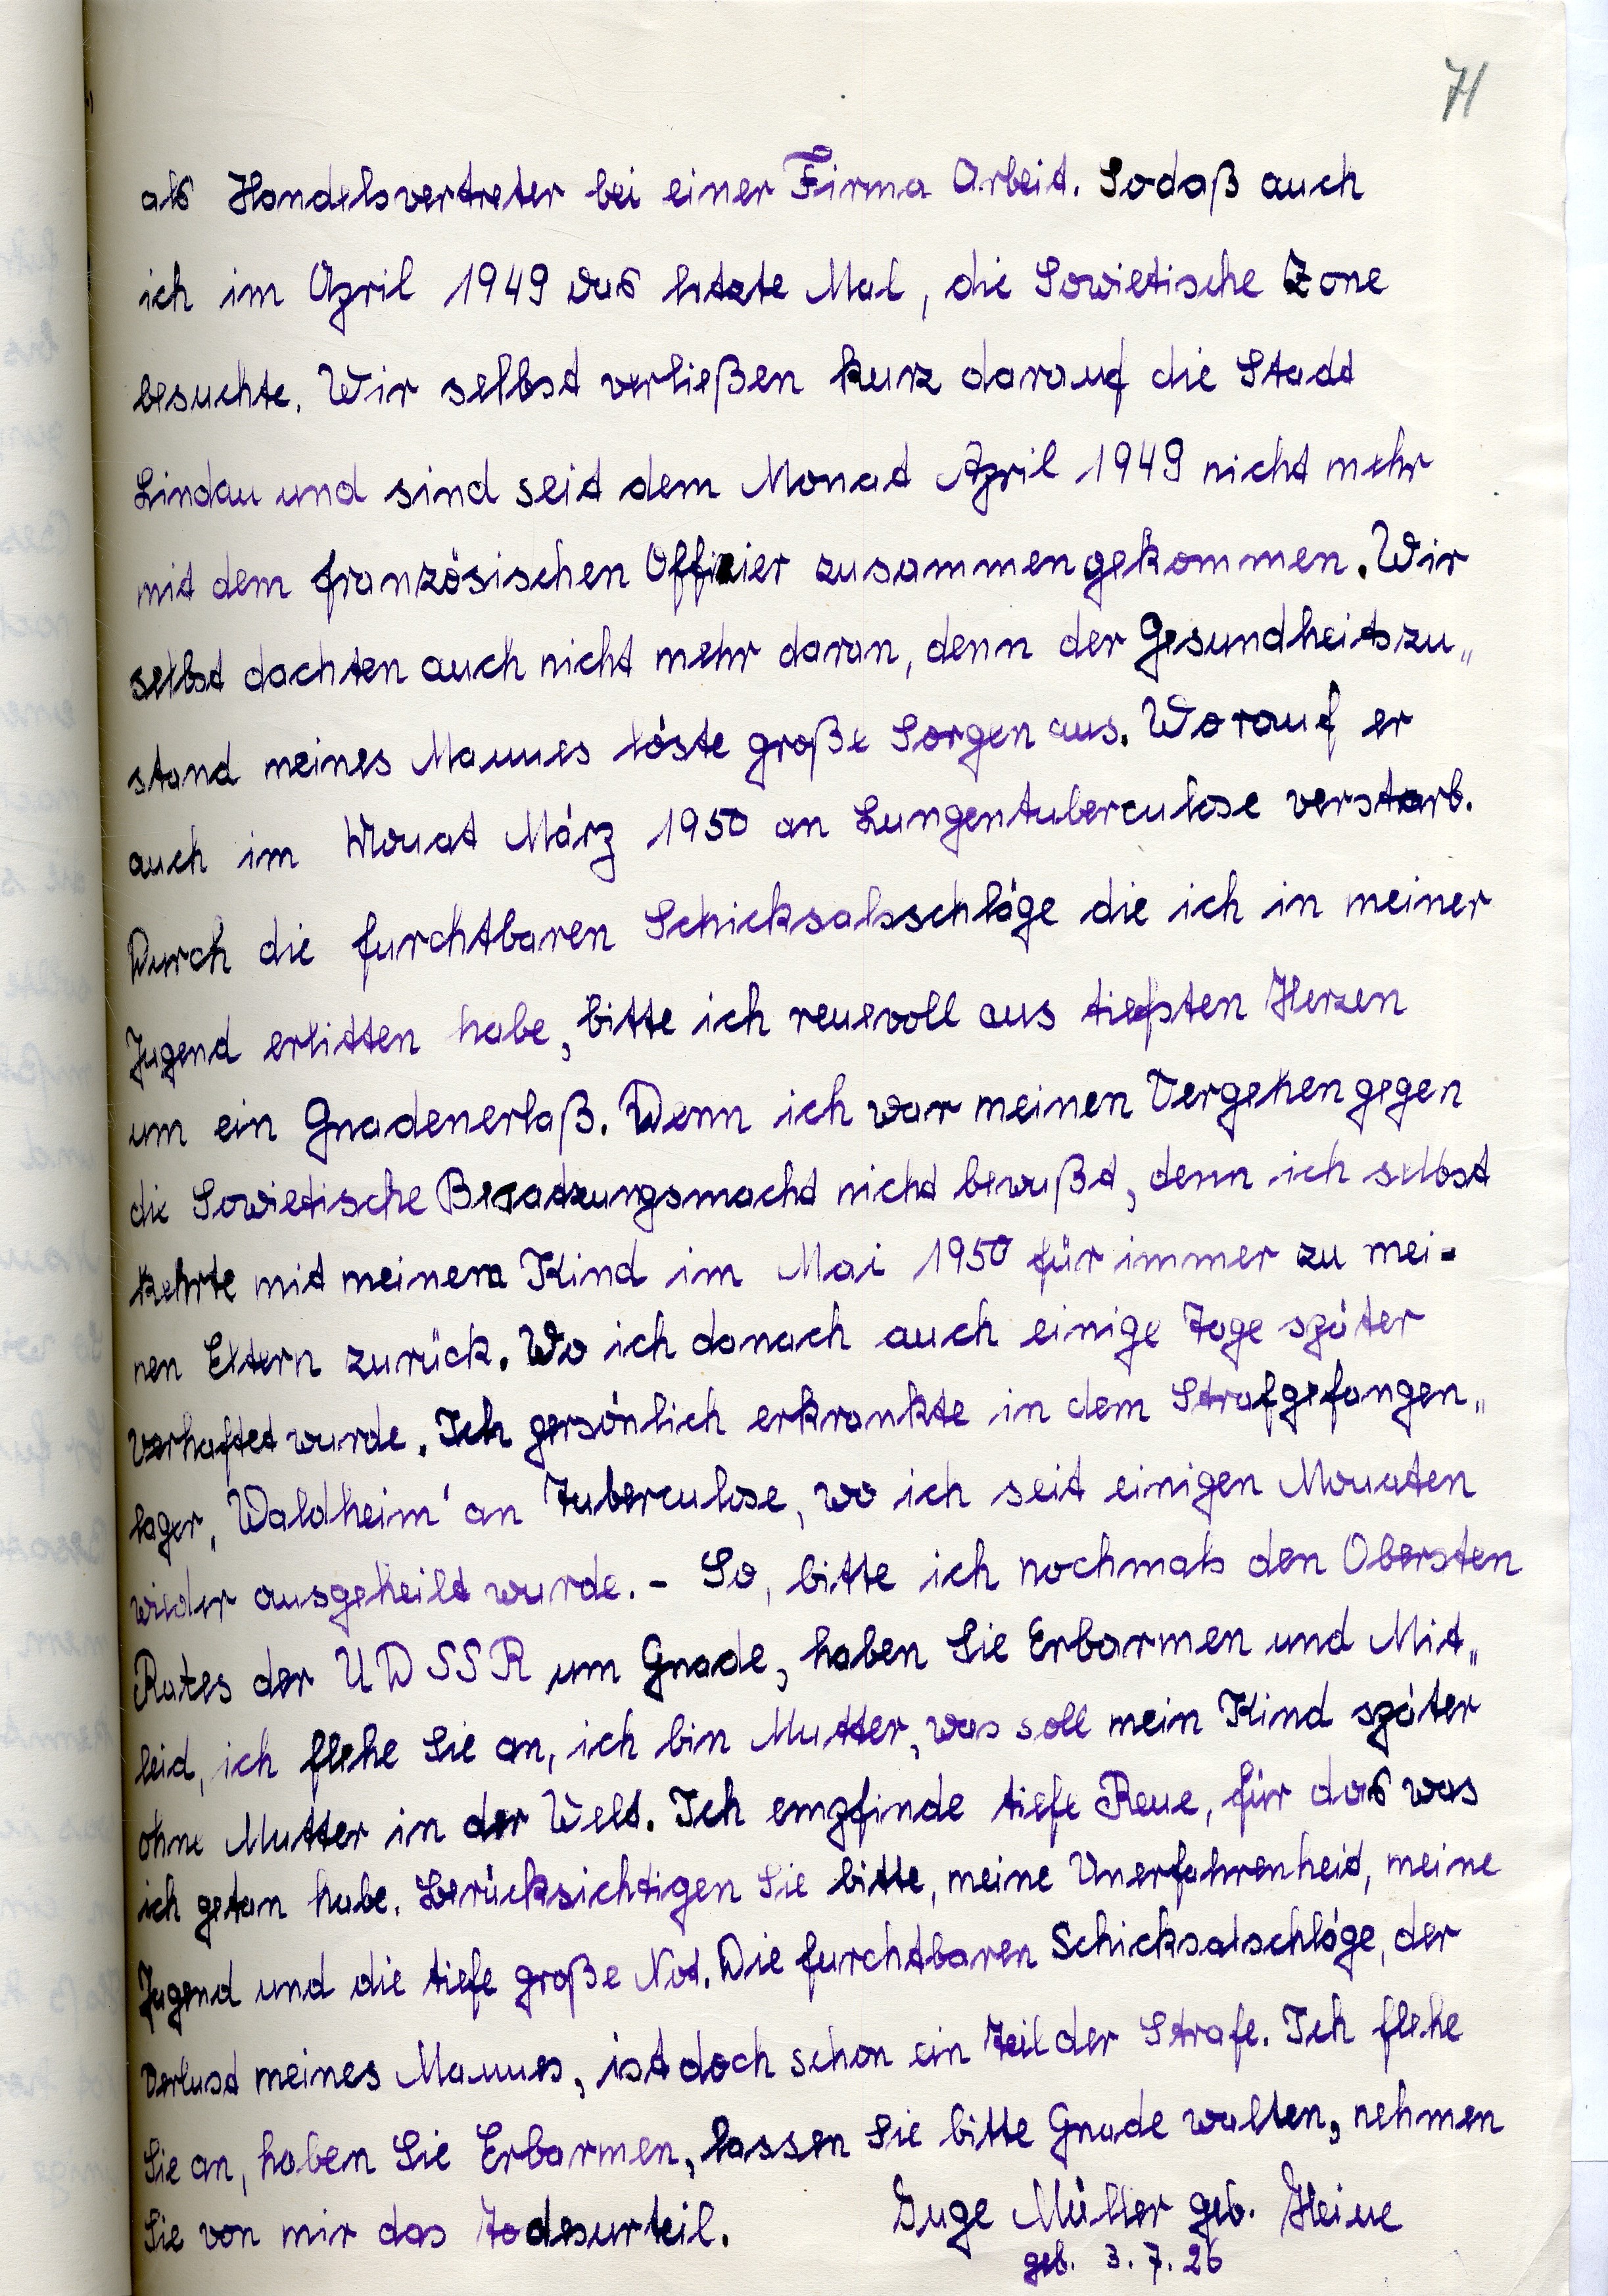 71
als Handelsvertreter bei einer Firma Arbeit. Sodaß auch
ich im April 1949 das letzte Mal, die Sowietische Zone
besuchte. Wir selbst verließen kurz darauf die Stadt
Lindau und sind seit dem Monat April 1949 nicht mehr
mit dem französischen Offizier zusammengekommen. Wir
selbst dachten auch nicht mehr daran, denn der Gesundheitszu„
stand meines Mannes löste große Sorgen aus. Worauf er
auch im Monat März 1950 an Lungentuberculose verstarb.
Durch die furchtbaren Schicksalsschläge die ich in meiner
Jugend erlitten habe, bitte ich reuevoll aus tiefsten Herzen
um ein Gnadenerlaß. Denn ich war meinen Vergehen gegen
die Sowietische Besatzungsmacht nicht bewußt, denn ich selbst
kehrte mit meinem Kind im Mai 1950 für immer zu mei=
nen Eltern zurück. Wo ich danach auch einige Tage später
verhaftet wurde. Ich persönlich erkrankte in dem Strafgefangen„
lager „Waldheim" an Tuberculose, wo ich seit einigen Monaten
wieder ausgeheilt wurde. - So, bitte ich nochmals den Obersten
Rates der UDSSR um Gnade, haben Sie Erbarmen und Mit„
leid, ich flehe Sie an, ich bin Mutter, was soll mein Kind später
ohne Mutter in der Welt. Ich empfinde tiefe Reue, für das was
ich getan habe. Berücksichtigen Sie bitte, meine Unerfahrenheit, meine
Jugend und die tiefe große Not. Die furchtbaren Schicksalschläge, der
Verlust meines Mannes, ist doch schon ein Teil der Strafe. Ich flehe
Sie an, haben Sie Erbarmen, lassen Sie bitte Gnade walten, nehmen
Sie von mir das Todesurteil. Inge Müller geb. Heine
geb. 3. 7. 26